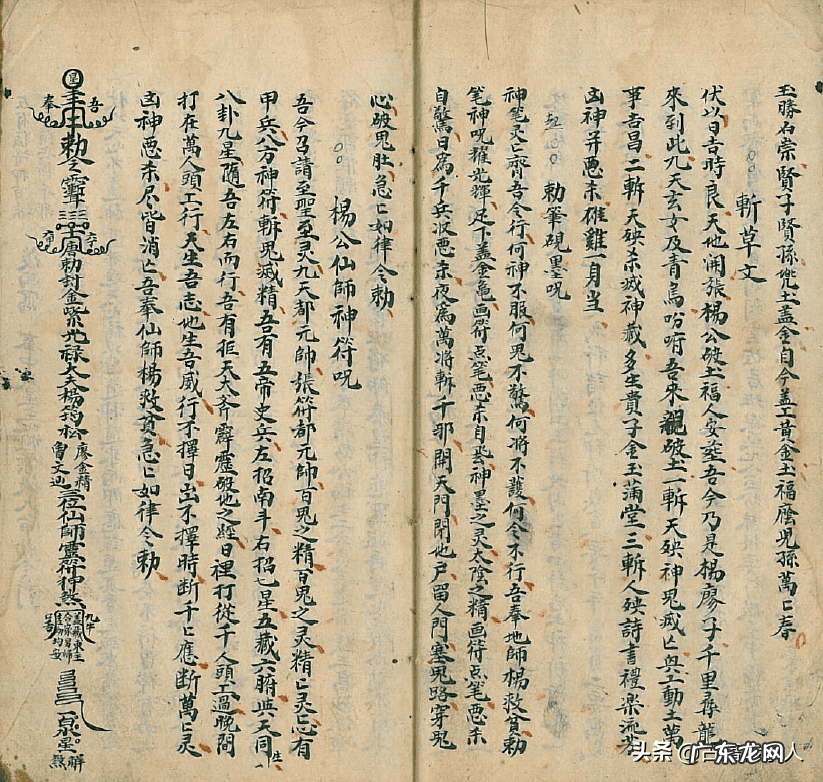 玉勝石崇賢子賢孫兜土盖金自今盖工黄金土福廕児孫萬〻春
斬草文
伏以日吉時良天地開張楊公破土福人安塟吾今乃是楊廖子千里尋龍
來到此九天玄女及青烏吩咐吾來破土一斬天殃神鬼滅亡與工動土萬
事吉昌二斬天殃杀滅神藏多生貴子金玉滿堂三斬人殃詩書禮樂流芳
凶神并悪杀雄雞一身当
勅筆硯墨呪
神笔灵〻齊吾令行何神不服何鬼不驚何将不護何令不行吾奉地師楊救貧勅
笔神呪耀光輝足下盖金龜画符点笔悪杀自神墨之灵太陰之精画符点笔悪杀
自驚日為千兵收悪杀夜為萬將斬千邪開天門閉地户留人門塞鬼路穿鬼
心破鬼肚急〻如律令勅
楊公仙師神符呪
吾今召請至聖至灵九天都元帥張符都元帥百鬼之精百鬼之灵精〻灵〻有
甲兵八方神符斬鬼滅精吾有五帝史兵左招南斗右招七星五藏六腑與天同生
八卦九星隨吾左右而行吾有拒天大斧霹靂破他之經日裡打從千人頭上過晚間
打在萬人頭上行天生吾志地生吾威行不擇日出不擇時断千〻應断萬〻灵
凶神悪杀尽皆消亡吾奉仙師楊救貧急〻如律令勅
吾
奉
勅令
勅封金紫光禄大夫楊筠松
廖金精
曾文辿
仙師靈符神煞